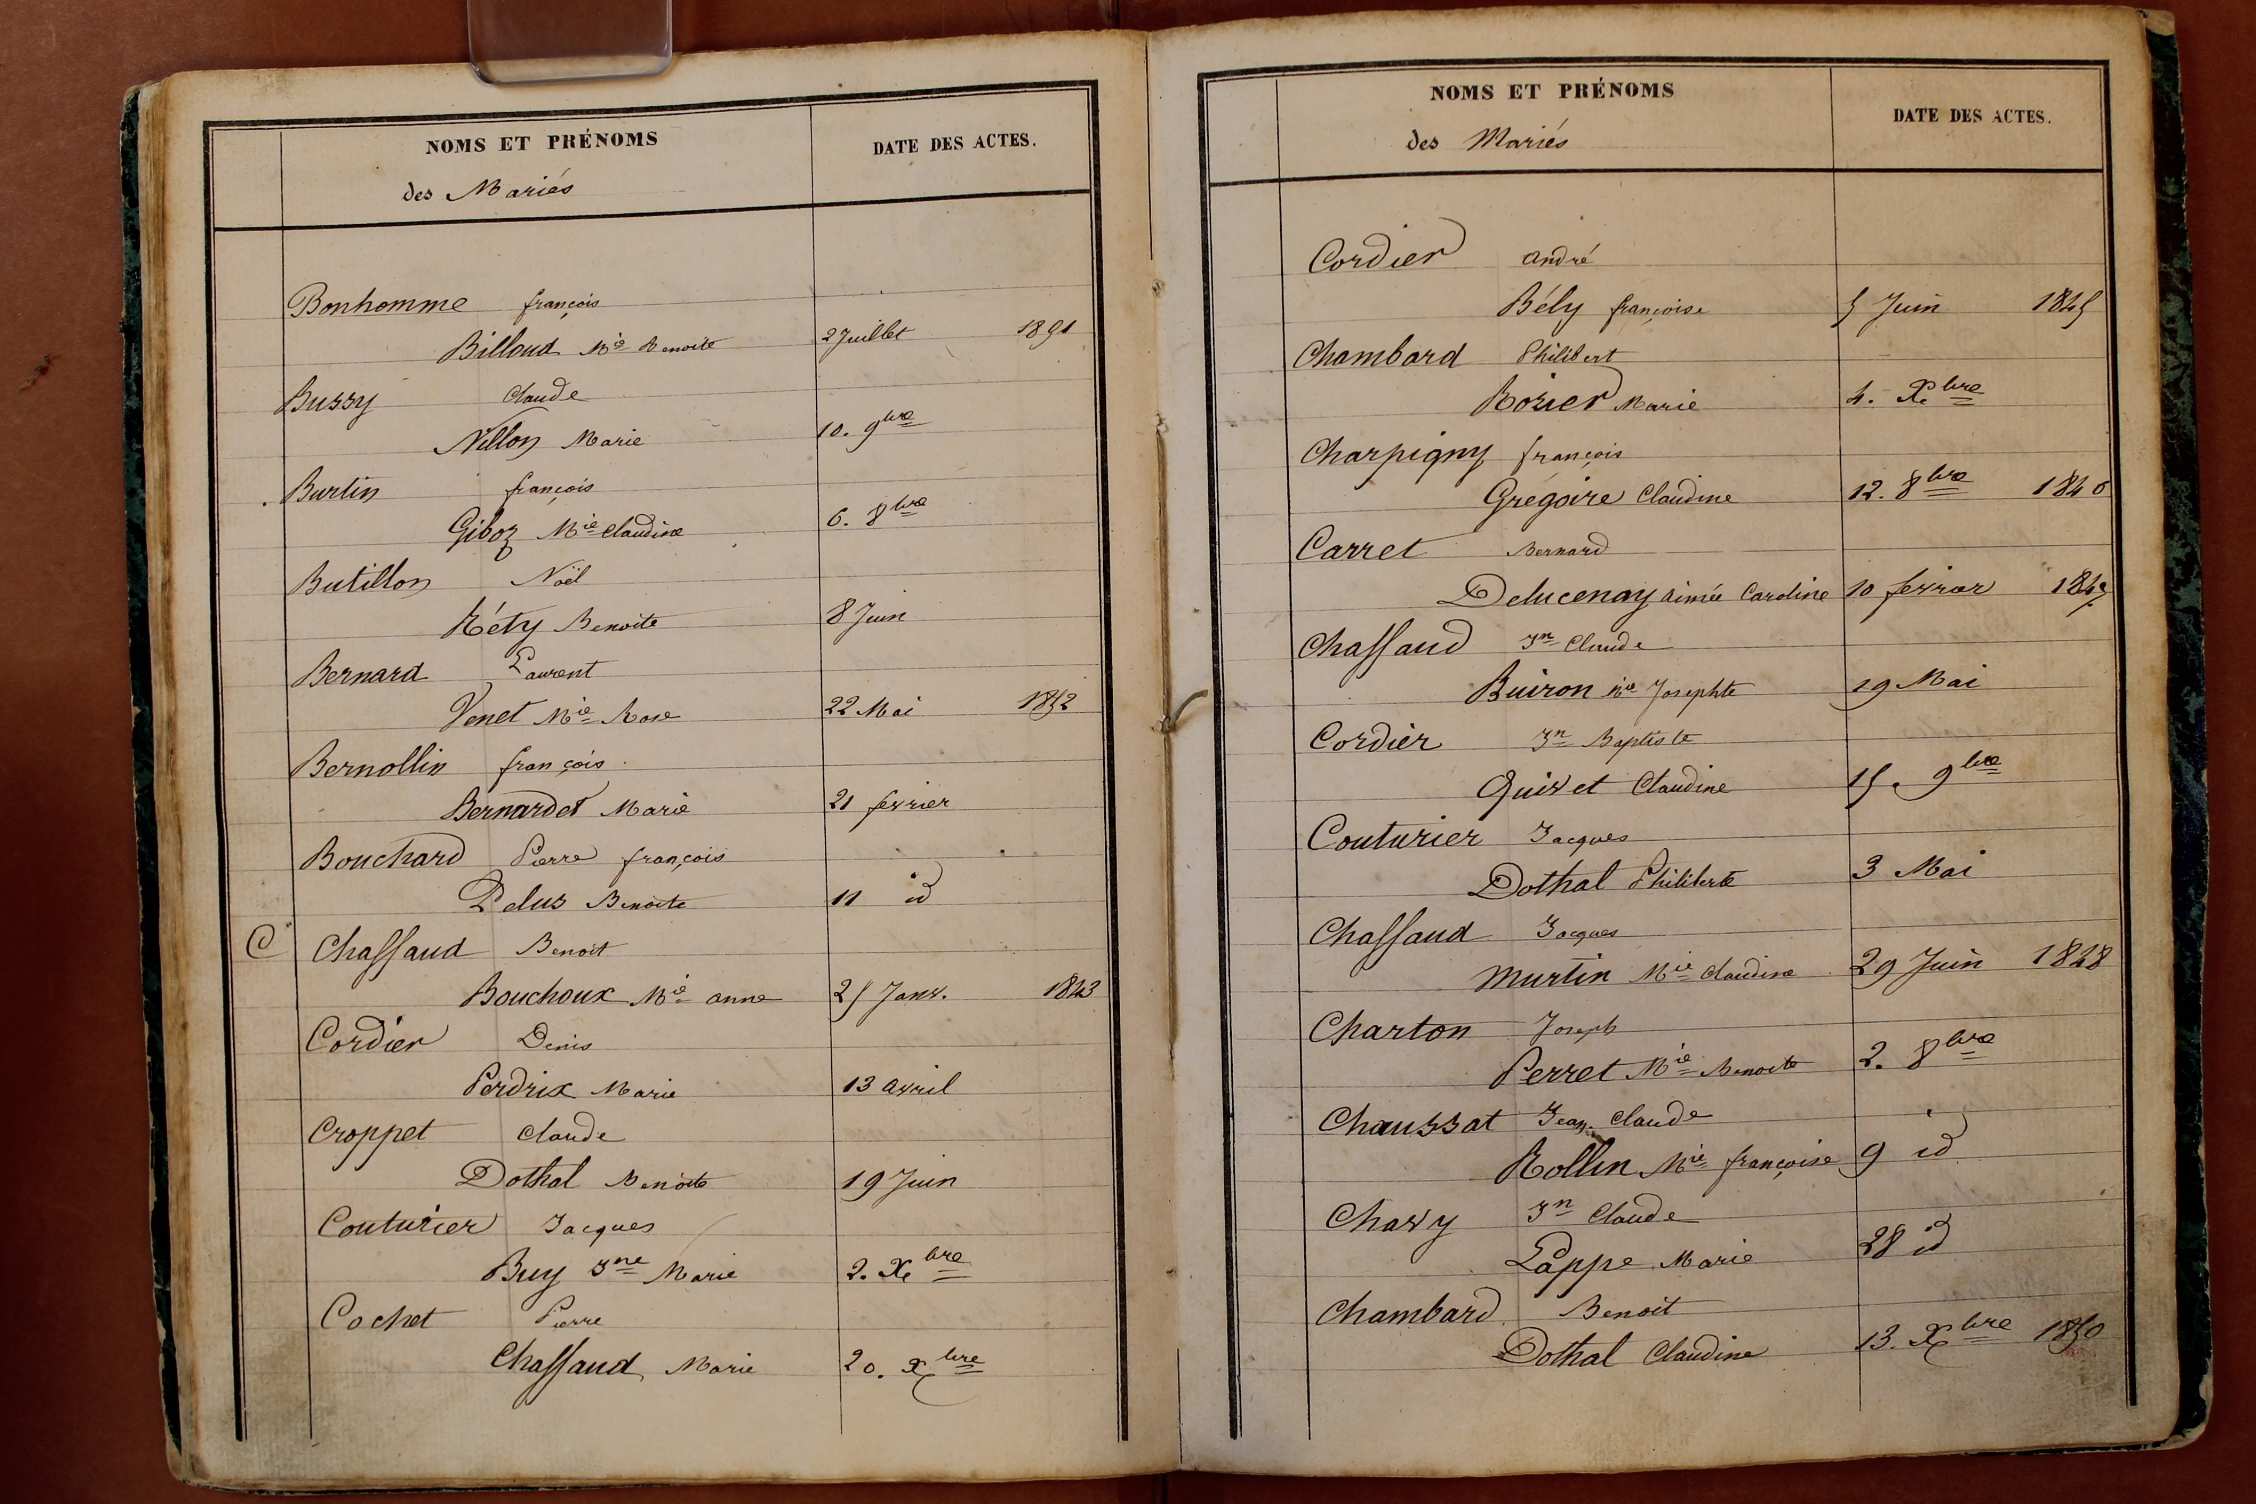 NOMS ET PRÉNOMS DATE DES ACTES.
des Mariés
Bonhomme françois
Billoud Mie Benoite 2 Juillet 1851
Bussy Claude
Nillon Marie 10. 9bre
Burtin françois
Giboz Mie Claudine 6. 8bre
Butillon Noël
Réty Benoite 8 Juin
Bernard Laurent
Venet Mie Rose 22 Mai 1852
Bernollin françois
Bernardet Marie 21 fevrier
Bouchard Pierre françois
Pelus Benoite 11 id
C Chaffaud Benoit
Bouchoux Mie anne 25 Janv. 1843
Cordier Denis
Perdrix Marie 13 avril
Croppet Claude
Dothal Benoite 19 Juin
Couturier Jacques
Buy Jne Marie 2. Xbre
Cochet Pierre
Chaffaud Marie 20. Xbre
NOMS ET PRÉNOMS DATE DES ACTES.
des Mariés
Cordier andré
Bély françoise 5 Juin 1845
Chambard Philibert
Rozier Marie 4. Xbre
Charpigny françois
Grégoire Claudine 12. 8bre 1846
Carret Bernard
Delucenay aimée Caroline 10 fevrier
Chaffaud Jn Claude
Buiron Mie Josephte 19 Mai
Cordier Jn Baptiste
Quivet Claudine 15. 9bre
Couturier Jacques
Dothal Philiberte 3 Mai
Chaffaud Jacques
Murtin Mie Claudine 29 Juin 1848
Charton Joseph
Perret Mie Benoite 2. 8bre
Chaussat Jean Claude
Rollin Mie françoise 9 id
Chavy Jn Claude
Lappe Marie 28 id
Chambard Benoit
Dothal Claudine 13. Xbre 1850